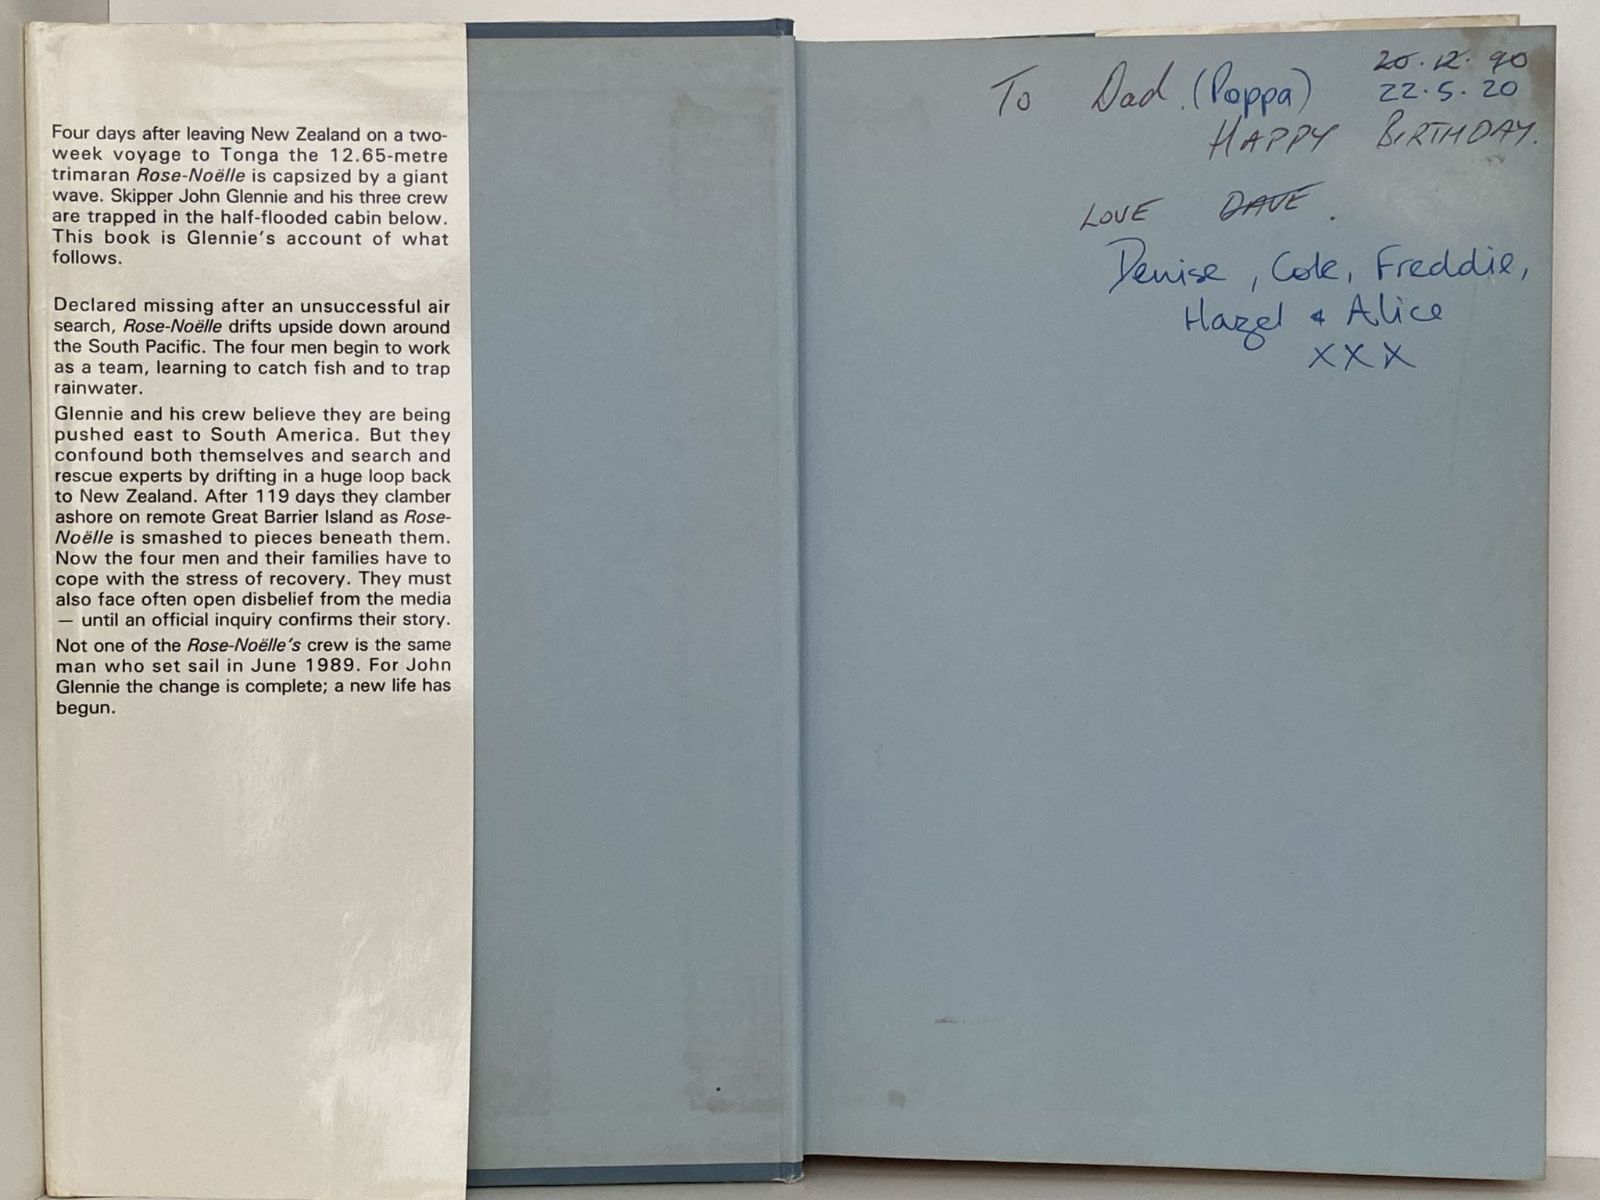 Four days after leaving New Zealand on a two-
week voyage to Tonga the 12.65-metre
trimaran Rose-Noëlle is capsized by a giant
wave. Skipper John Glennie and his three crew
are trapped in the half-flooded cabin below.
This book is Glennie's account of what
follows.
Declared missing after an unsuccessful air
search, Rose-Noëlle drifts upside down around
the South Pacific. The four men begin to work
as a team, learning to catch fish and to trap
rainwater.
Glennie and his crew believe they are being
pushed east to South America. But they
confound both themselves and search and
rescue experts by drifting in a huge loop back
to New Zealand. After 119 days they clamber
ashore on remote Great Barrier Island as Rose-
Noëlle is smashed to pieces beneath them.
Now the four men and their families have to
cope with the stress of recovery. They must
also face often open disbelief from the media
— until an official inquiry confirms their story.
Not one of the Rose-Noëlle's crew is the same
man who set sail in June 1989. For John
Glennie the change is complete; a new life has
begun.
20.12.90
To Dad. (Poppa) 22.5.20
HAPPY BIRTHDAY.
LOVE DAVE.
Denise, Cole, Freddie,
Hazel & Alice
xxx